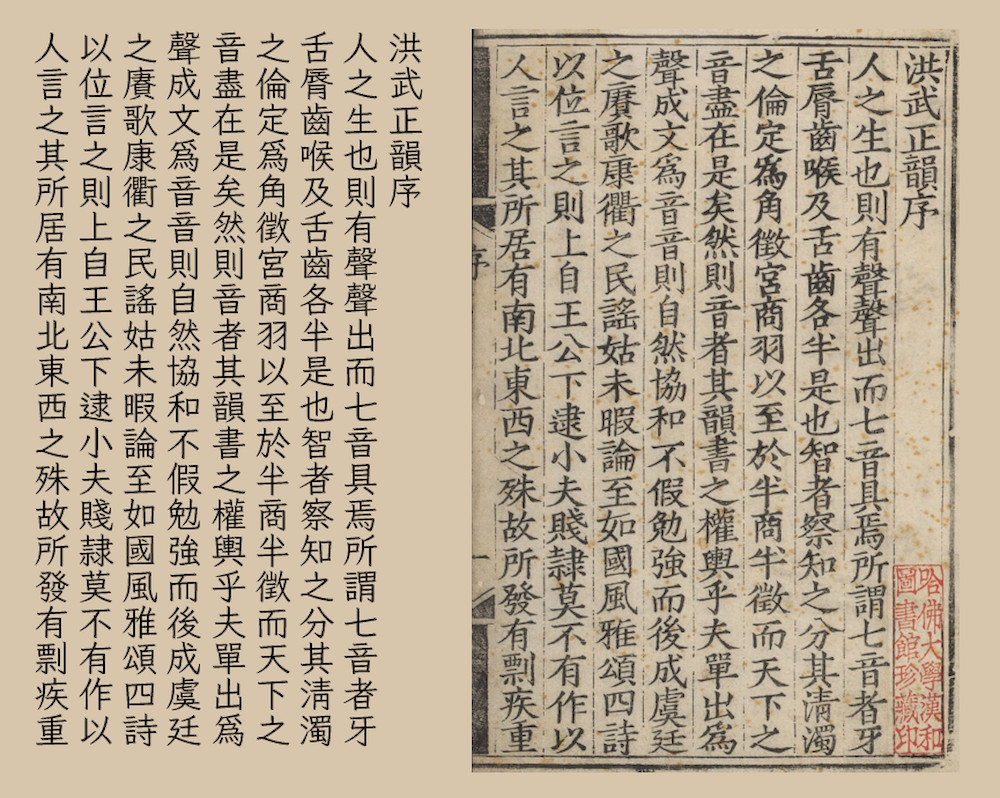 洪武正韻序
人之生也則有聲聲出而七音具焉所謂七音者牙
舌脣齒喉及舌齒各半是也智者察知之分其清濁
之倫定爲角徵宮商羽以至於半商半徵而天下之
音盡在是矣然則音者其韻書之權輿乎夫單出爲
聲成文爲音音則自然協和不假勉強而後成虞廷
之賡歌康衢之民謠姑未暇論至如國風雅頌四詩
以位言之則上自王公下逮小夫賤隸莫不有作以
人言之其所居有南北東西之殊故所發有剽疾重
序
一
哈佛大學漢和
圖書館珍藏印
洪武正韻序
人之生也則有聲聲出而七音具焉所謂七音者牙
舌脣齒喉及舌齒各半是也智者察知之分其清濁
之倫定爲角徵宮商羽以至於半商半徵而天下之
音盡在是矣然則音者其韻書之權輿乎夫單出爲
聲成文爲音音則自然協和不假勉強而後成虞廷
之賡歌康衢之民謠姑未暇論至如國風雅頌四詩
以位言之則上自王公下逮小夫賤隸莫不有作以
人言之其所居有南北東西之殊故所發有剽疾重